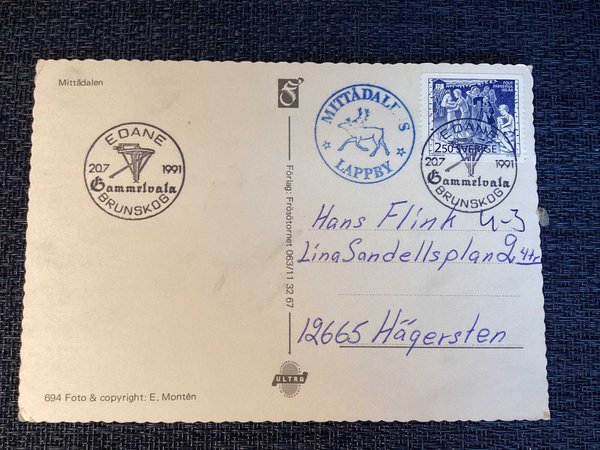 Mittådalen
EDANE
20.7 1991
Gammelvala
BRUNSKOG
694 Foto & copyright: E. Montén
Förlag: Frösötornet 063/11 32 67
ULTRA
MITTÅDALENS
LAPPBY
2.50 SVERIGE
EDANE
20.7 1991
Gammelvala
BRUNSKOG
Hans Flink
Lina Sandellsplan 9 4tr
12665 Hägersten